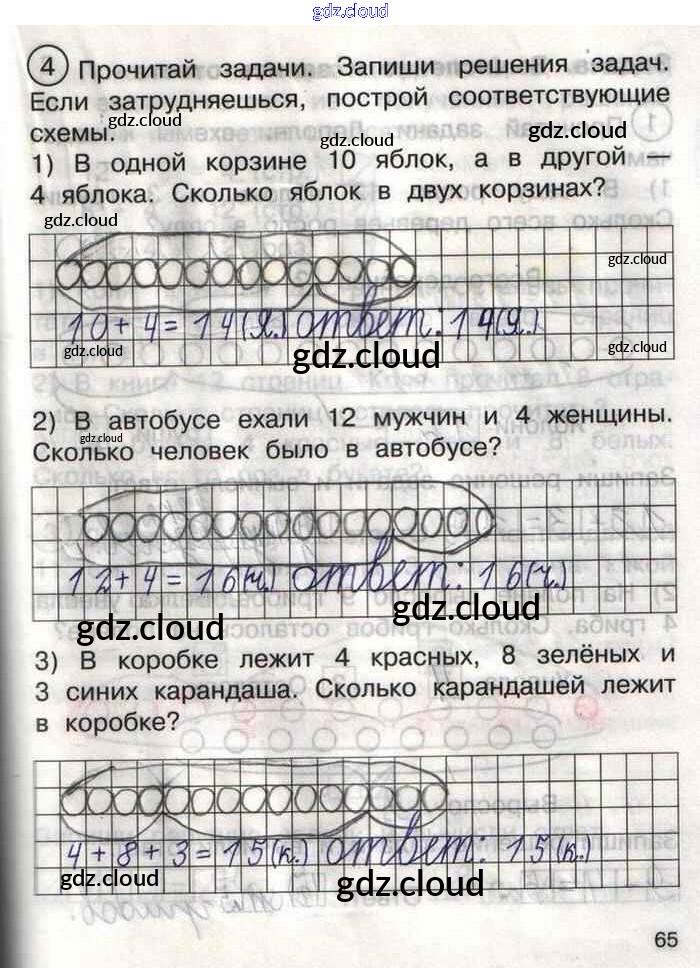 gdz.cloud
4 Прочитай задачи. Запиши решения задач.
Если затрудняешься, построй соответствующие
схемы.
gdz.cloud gdz.cloud
1) В одной корзине 10 яблок, а в другой —
4 яблока. Сколько яблок в двух корзинах?
gdz.cloud gdz.cloud
gdz.cloud
10 + 4 = 14 (я.) ответ: 14 (я.)
gdz.cloud gdz.cloud gdz.cloud
2) В автобусе ехали 12 мужчин и 4 женщины.
gdz.cloud
Сколько человек было в автобусе?
12 + 4 = 16 (ч.) ответ: 16 (ч.)
gdz.cloud gdz.cloud
3) В коробке лежит 4 красных, 8 зелёных и
3 синих карандаша. Сколько карандашей лежит
в коробке?
4 + 8 + 3 = 15 (к.) ответ: 15 (к.)
gdz.cloud gdz.cloud
65